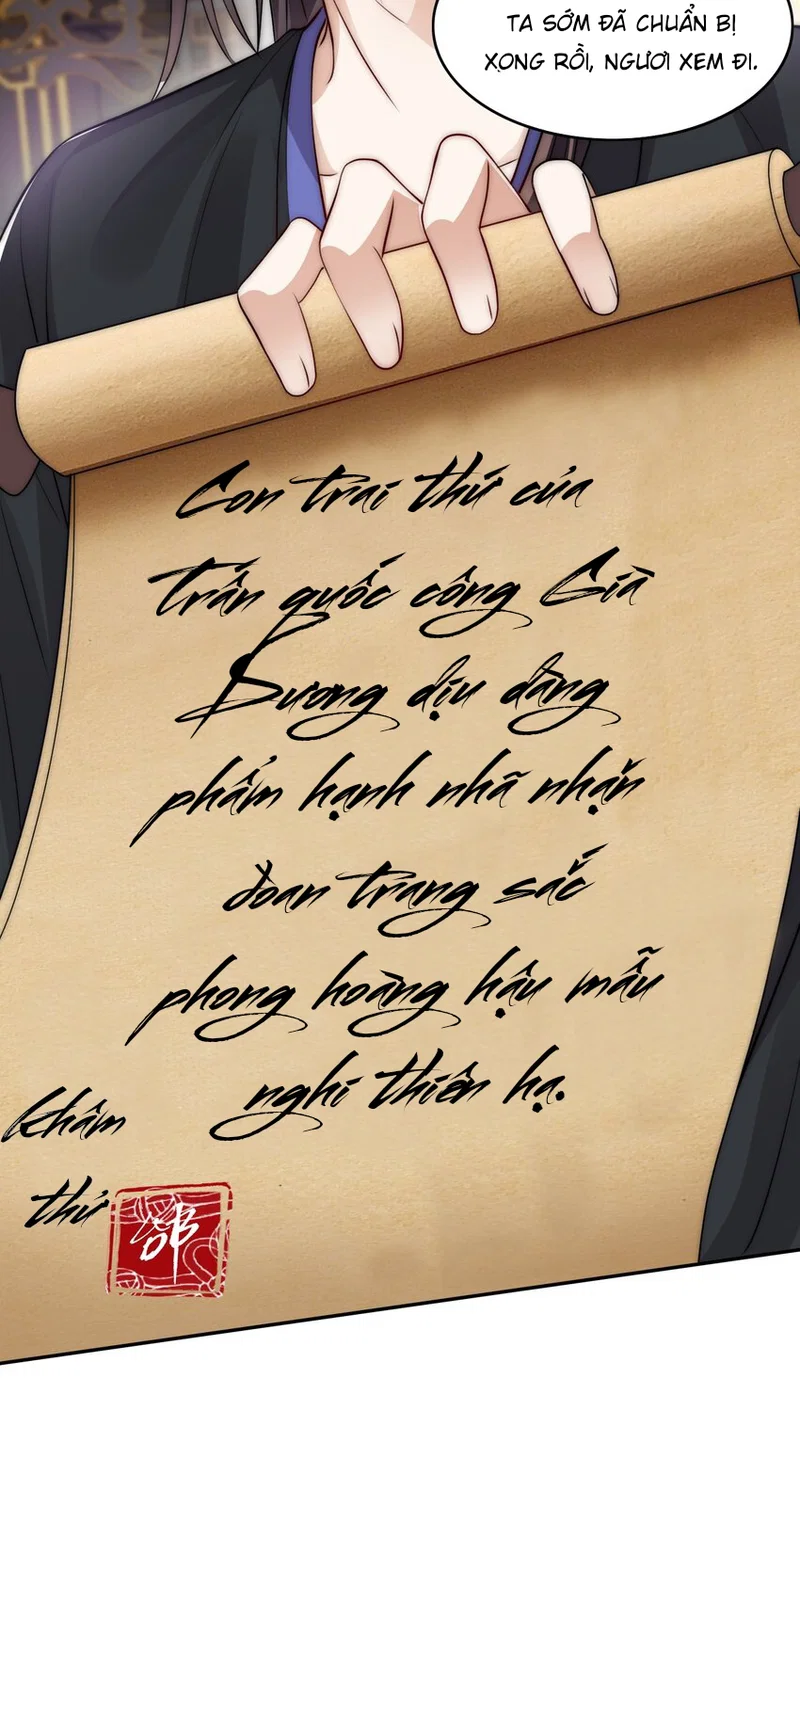 TA SỚM ĐÃ CHUẨN BỊ
XỌNG RỒI, NGƯƠI XEM ĐI.
Con trai thứ của
trấn quốc công Già
Dương dịu dàng
phẩm hạnh nhã nhặn
đoan trang sắc
phong hoàng hậu mẫu
nghi thiên hạ.
khâm
thử